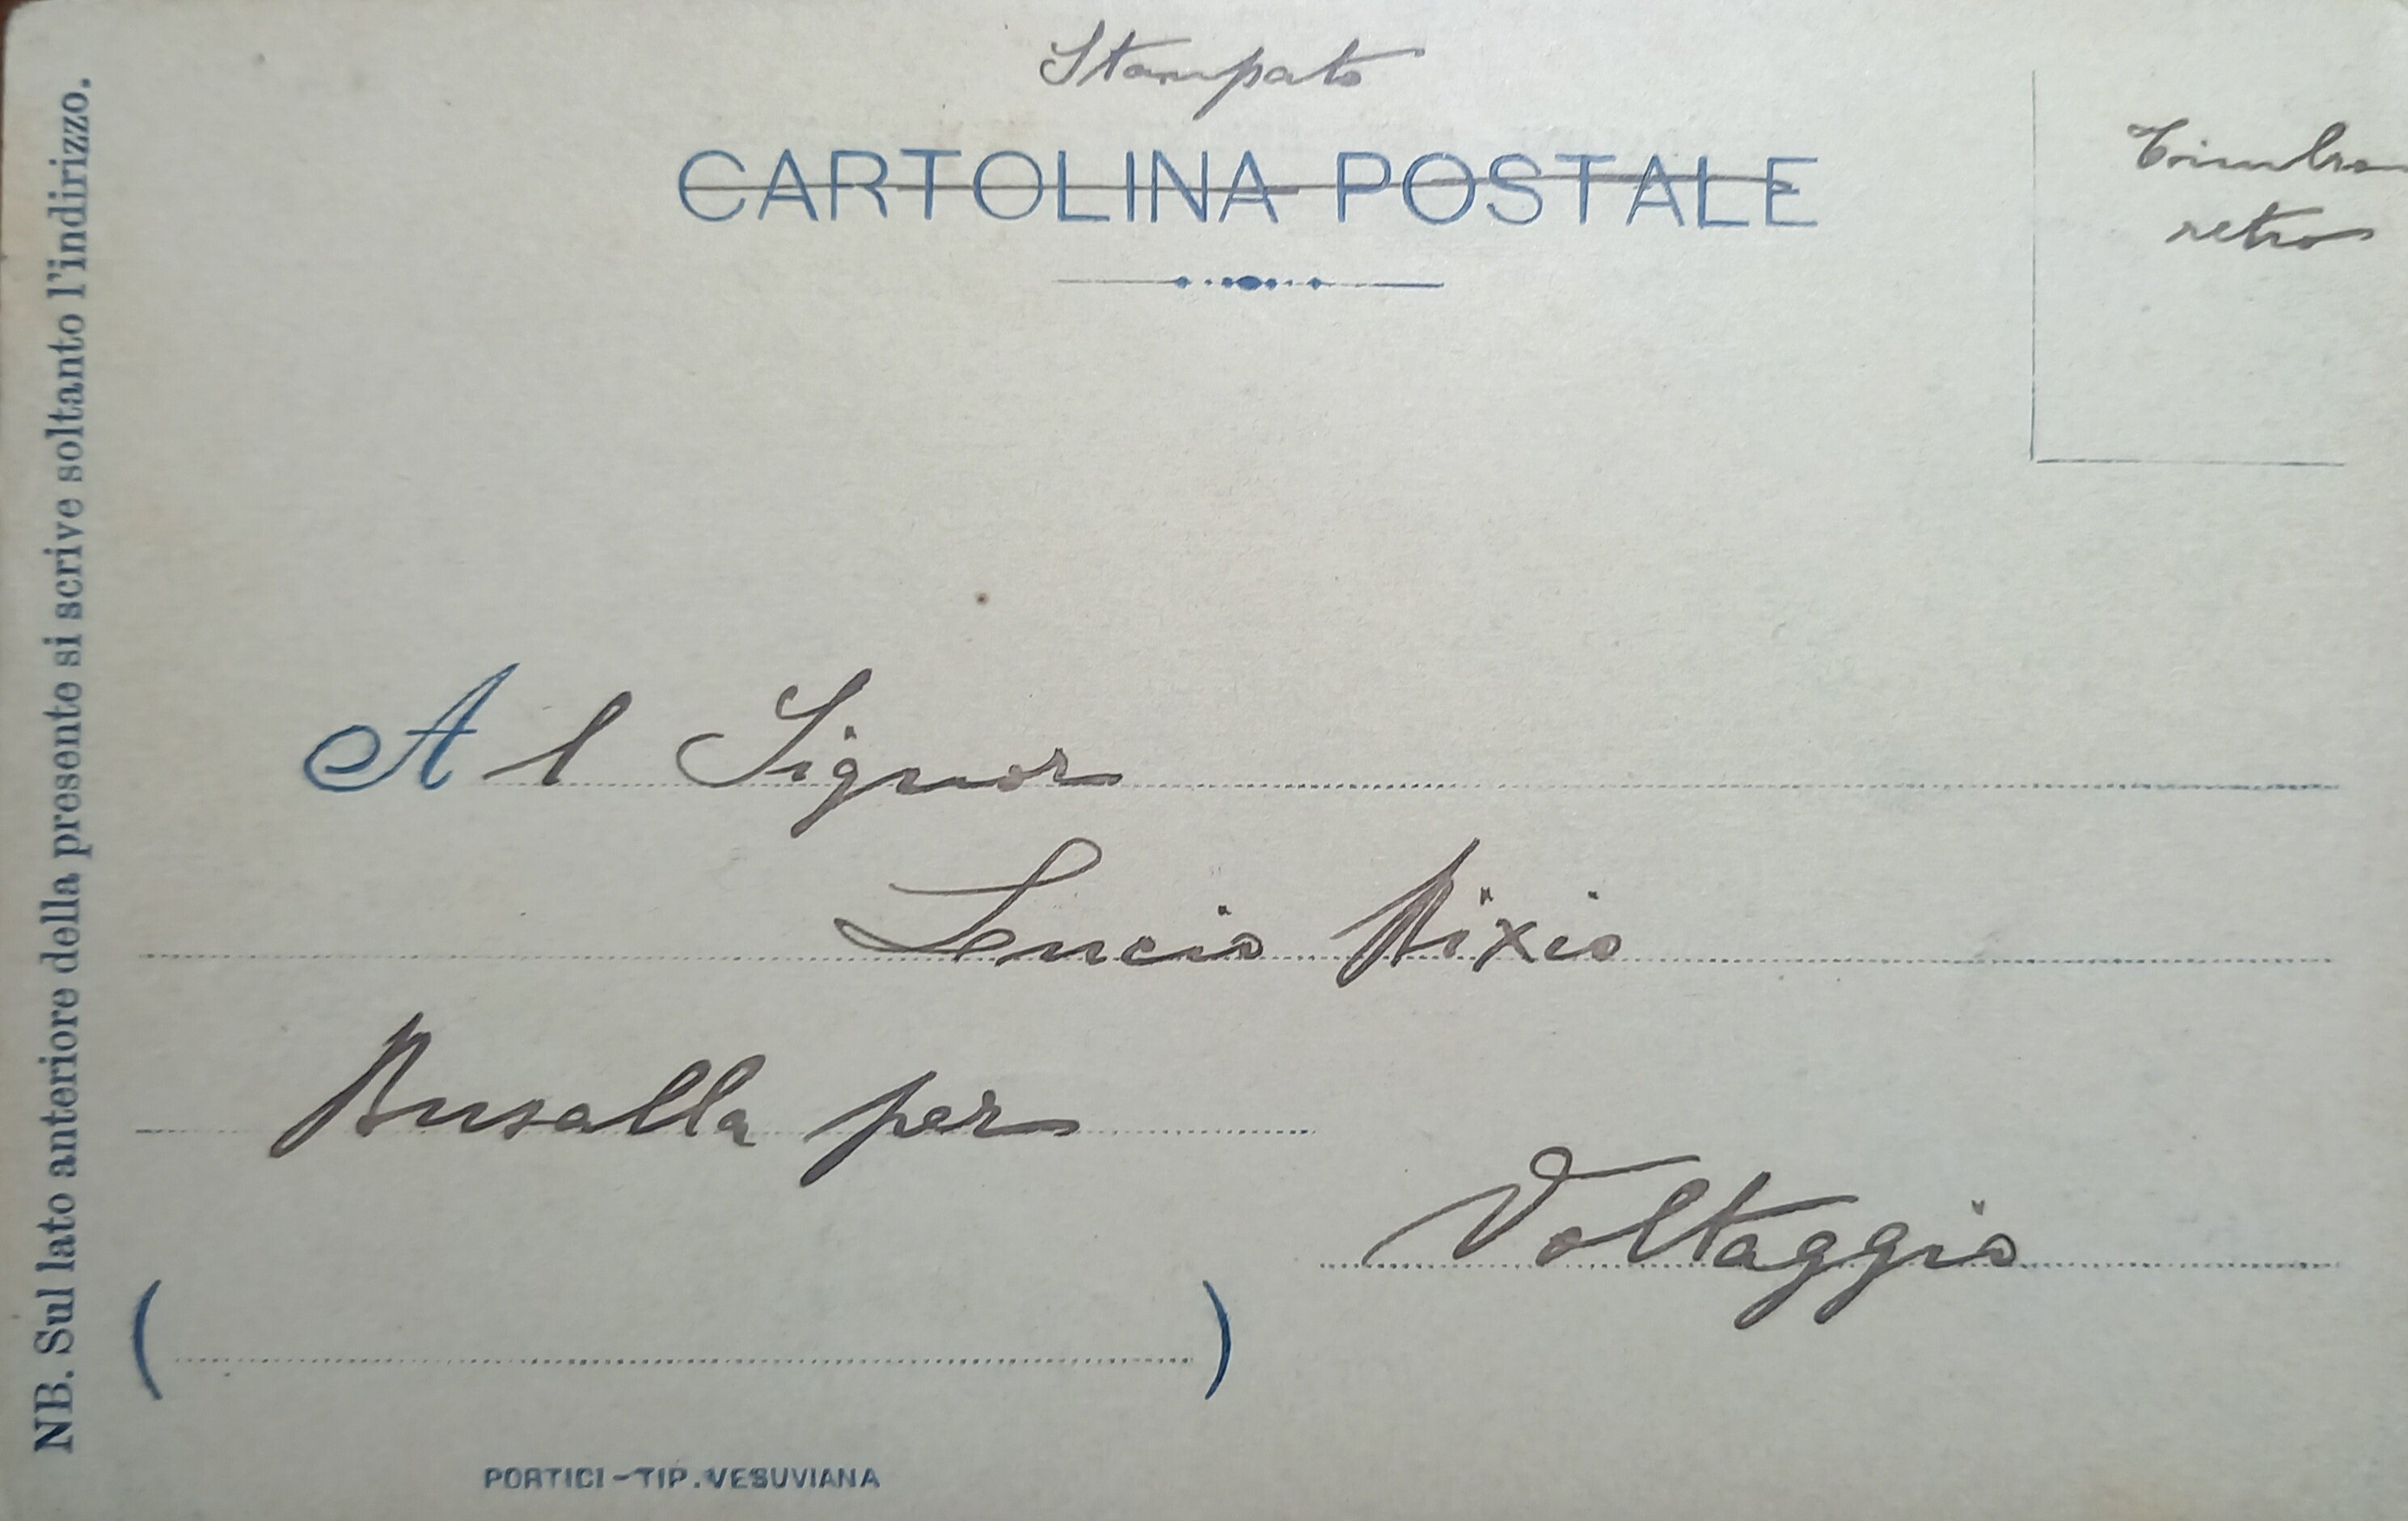 Stampato
CARTOLINA POSTALE
Timbro
retro
Al Signor
Lucio Bixio
Busalla per
Voltaggio
( )
PORTICI - TIP. VESUVIANA
NB. Sul lato anteriore della presente si scrive soltanto l'indirizzo.